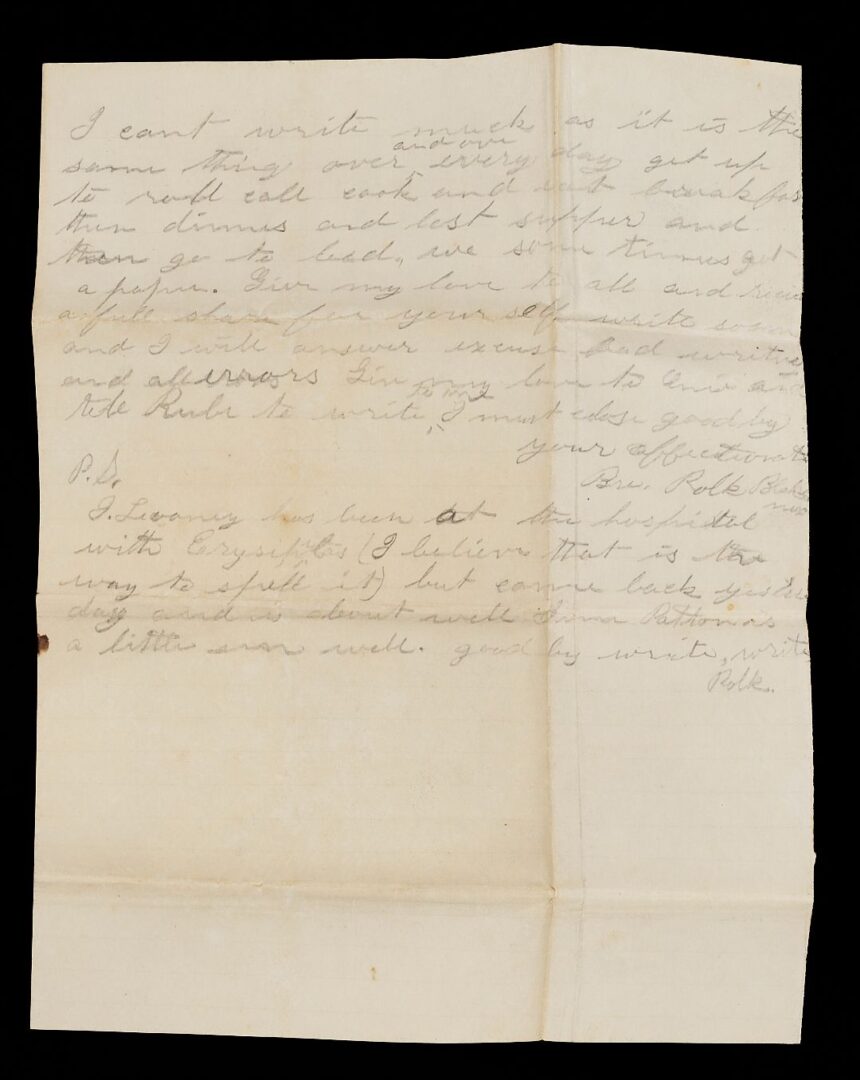 I cant write much as it is the
same thing over and over every day get up
to roll call cook and eat breakfas
then dinner and last supper and
then go to bed, we some times get
a paper. Give my love to all and
a full share for your self write soon
and I will answer excuse bad
and all errors Give my love to and
tell Rube to write to me I must close good by
your affectionate
Bro. Polk
P.S.
J. has been at the hospital
with (I believe that is the
way to spell it) but came back
day and is about well is
a little well. good by write, write
Polk.